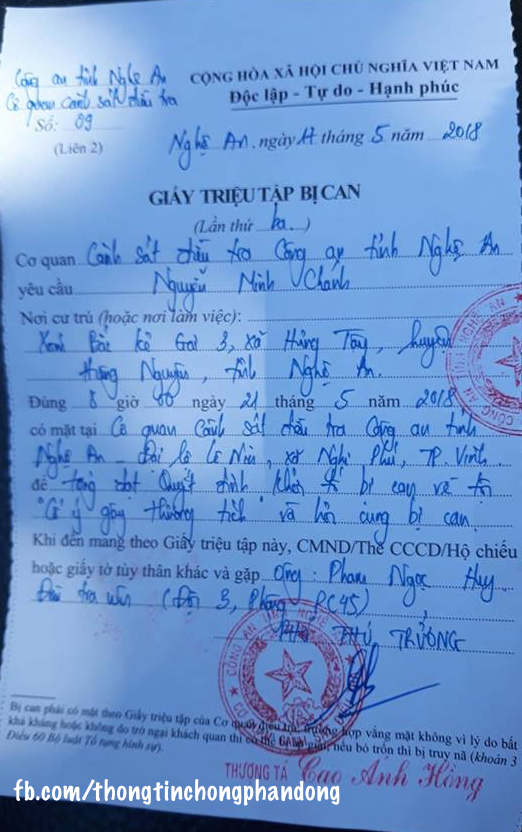 Công an tỉnh Nghệ An
Cơ quan cảnh sát điều tra
Số: 09
(Liên 2)
CỘNG HÒA XÃ HỘI CHỦ NGHĨA VIỆT NAM
Độc lập - Tự do - Hạnh phúc
Nghệ An, ngày 17 tháng 5 năm 2018
GIẤY TRIỆU TẬP BỊ CAN
(Lần thứ ba.)
Cơ quan Cảnh sát điều tra Công an tỉnh Nghệ An
yêu cầu Nguyễn Minh Chánh
Nơi cư trú (hoặc nơi làm việc):
Xóm 3, xã Hưng Tây, huyện
Hưng Nguyên, tỉnh Nghệ An.
Đúng 8 giờ ngày 21 tháng 5 năm 2018
có mặt tại Cơ quan Cảnh sát điều tra Công an tỉnh
Nghệ An - Đại lộ Lê Nin, xã Nghi Phú, TP. Vinh
để tống đạt "Quyết định khởi tố bị can về tội
"Cố ý gây thương tích" và hỏi cung bị can.
Khi đến mang theo Giấy triệu tập này, CMND/Thẻ CCCD/Hộ chiếu
hoặc giấy tờ tùy thân khác và gặp ông: Phạm Ngọc Huy
Điều tra viên (Đội 3, Phòng PC45)
THỦ TRƯỞNG
Bị can phải có mặt theo Giấy triệu tập của Cơ quan điều tra, trường hợp vắng mặt không vì lý do bất
khả kháng hoặc không do trở ngại khách quan thì có thể giải, nếu bỏ trốn thì bị truy nã (khoản 3
Điều 60 Bộ luật Tố tụng hình sự).
THƯỢNG TÁ Cao Anh Hồng
fb.com/thongtinchongphandong